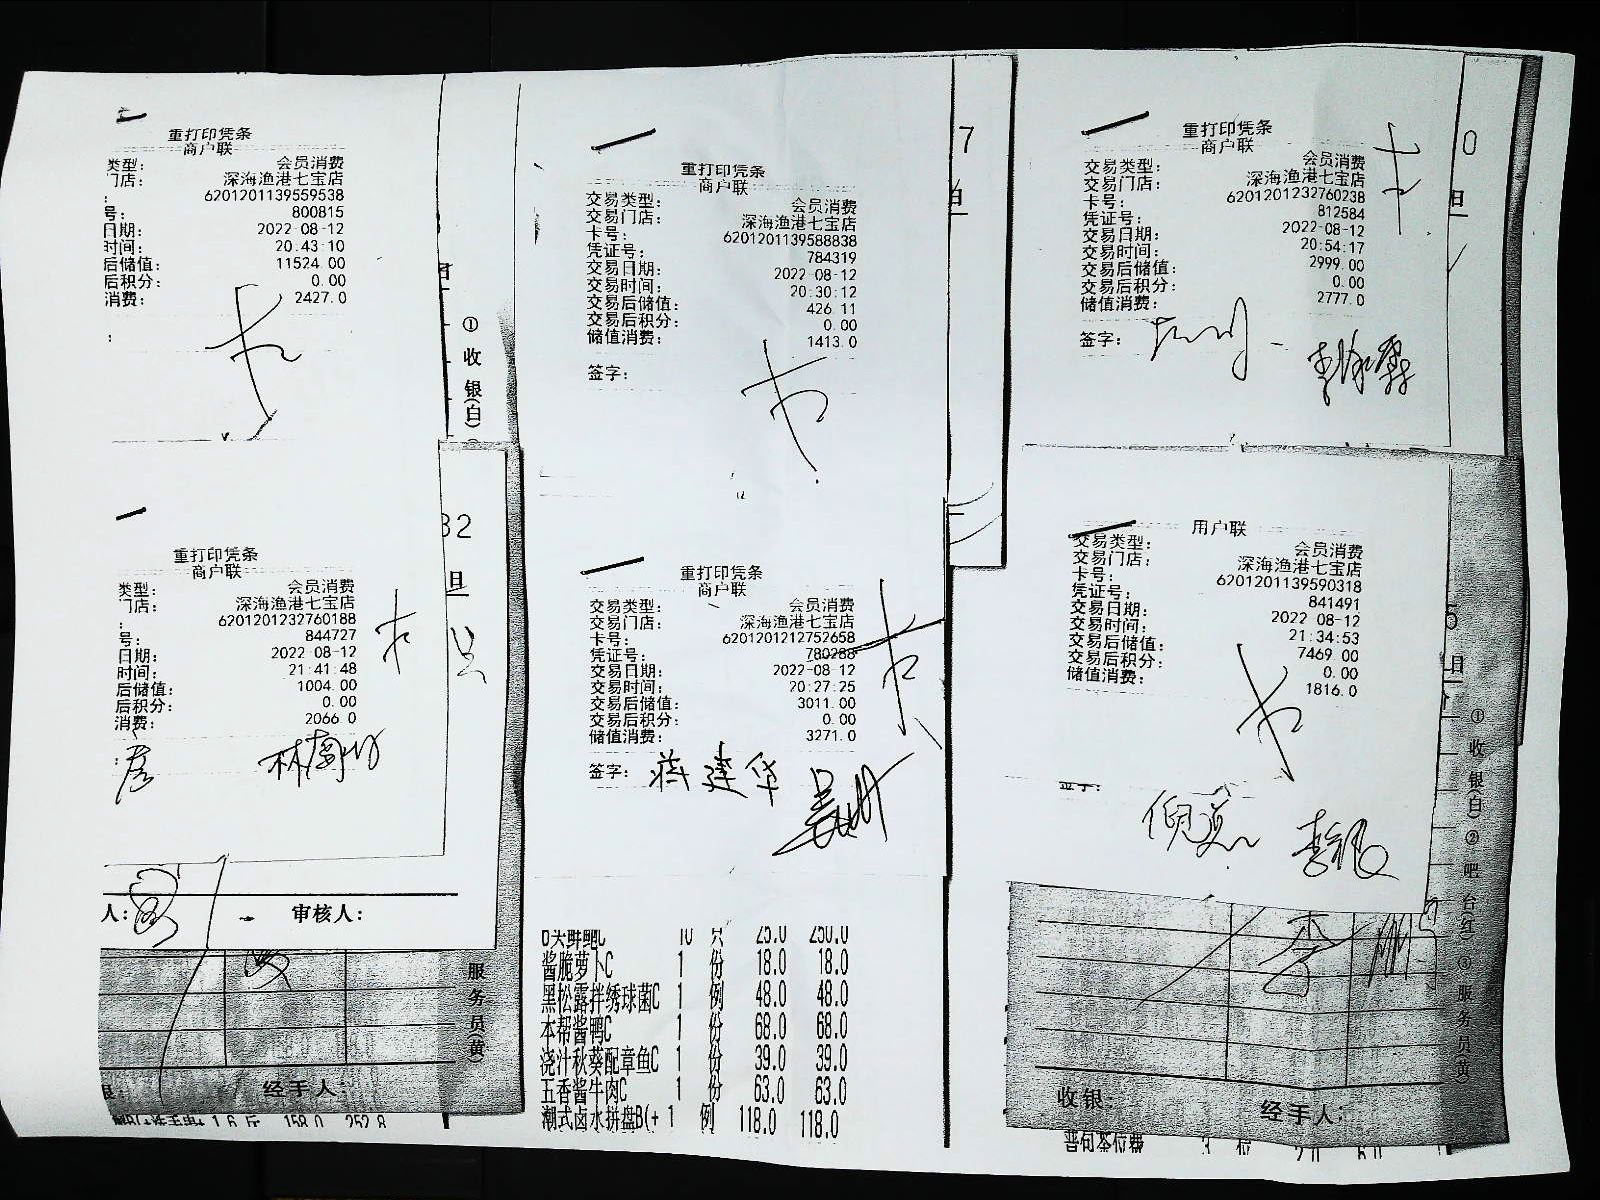 重打印凭条
商户联
类型: 会员消费
门店: 深海渔港七宝店
: 6201201139559538
号: 800815
日期: 2022-08-12
时间: 20:43:10
后储值: 11524.00
后积分: 0.00
消费: 2427.0
:
①收银(白)
重打印凭条
商户联
交易类型: 会员消费
交易门店: 深海渔港七宝店
卡号: 6201201139588838
凭证号: 784319
交易日期: 2022-08-12
交易时间: 20:30:12
交易后储值: 426.11
交易后积分: 0.00
储值消费: 1413.0
签字:
7
重打印凭条
商户联
交易类型: 会员消费
交易门店: 深海渔港七宝店
卡号: 6201201232760238
凭证号: 812584
交易日期: 2022-08-12
交易时间: 20:54:17
交易后储值: 2999.00
交易后积分: 0.00
储值消费: 2777.0
签字:
0
重打印凭条
商户联
类型: 会员消费
门店: 深海渔港七宝店
: 6201201232760188
号: 844727
日期: 2022-08-12
时间: 21:41:48
后储值: 1004.00
后积分: 0.00
消费: 2066.0
32
人: 审核人:
服务员(黄)
经手人:
重打印凭条
商户联
交易类型: 会员消费
交易门店: 深海渔港七宝店
卡号: 6201201212752658
凭证号: 780288
交易日期: 2022-08-12
交易时间: 20:27:25
交易后储值: 3011.00
交易后积分: 0.00
储值消费: 3271.0
签字: 蒋建华
10 只 25.0 250.0
酱脆萝卜C 1 份 18.0 18.0
黑松露拌绣球菌C 1 例 48.0 48.0
本帮酱鸭C 1 份 68.0 68.0
浇汁秋葵配章鱼C 1 份 39.0 39.0
五香酱牛肉C 1 份 63.0 63.0
潮式卤水拼盘B(+ 1 例 118.0 118.0
用户联
交易类型: 会员消费
交易门店: 深海渔港七宝店
卡号: 6201201139590318
凭证号: 841491
交易日期: 2022-08-12
交易时间: 21:34:53
交易后储值: 7469.00
交易后积分: 0.00
储值消费: 1816.0
5
①收银(白)②吧台(红)③服务员(黄)
收银: 经手人:
1.6 斤 158.0 252.8